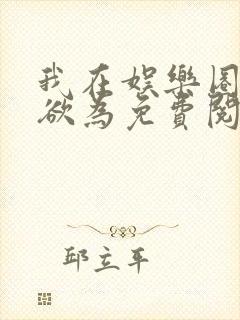 我在娱樂圈
欲為免費閱
邱立平